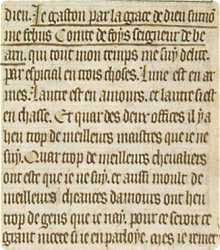 dieu. Je gaston par la grace de dieu surno
me febus Conte de foys seigneur de be
arn, qui tout mon temps me suy delite
Par especial en trois choses. Lune est en ar
mes. Lautre est en amours. et lautre si est
en chasse. Et quar des deux offices il y a
heu trop de meilleurs maistres que je ne
suy. Quar trop de meilleurs chevaliers
ont este que je ne suy. et aussi moult de
meilleurs cheances damours ont heu
trop de gens que je nay. pour ce seroit ce
grant nicete si je en parloye. mes je remet